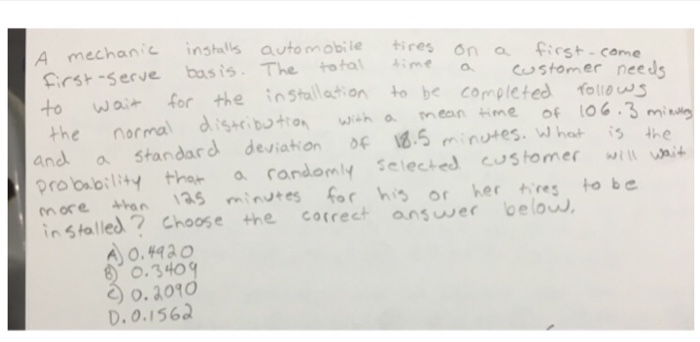 A mechanic installs automobile tires on a first-come
first-serve basis. The total time a customer needs
to wait for the installation to be completed follows
the normal distribution with a mean time of 106.3 minutes
and a standard deviation of 18.5 minutes. What is the
probability that a randomly selected customer will wait
more than 125 minutes for his or her tires to be
installed? Choose the correct answer below.
A) 0.4920
B) 0.3409
C) 0.2090
D. 0.1562